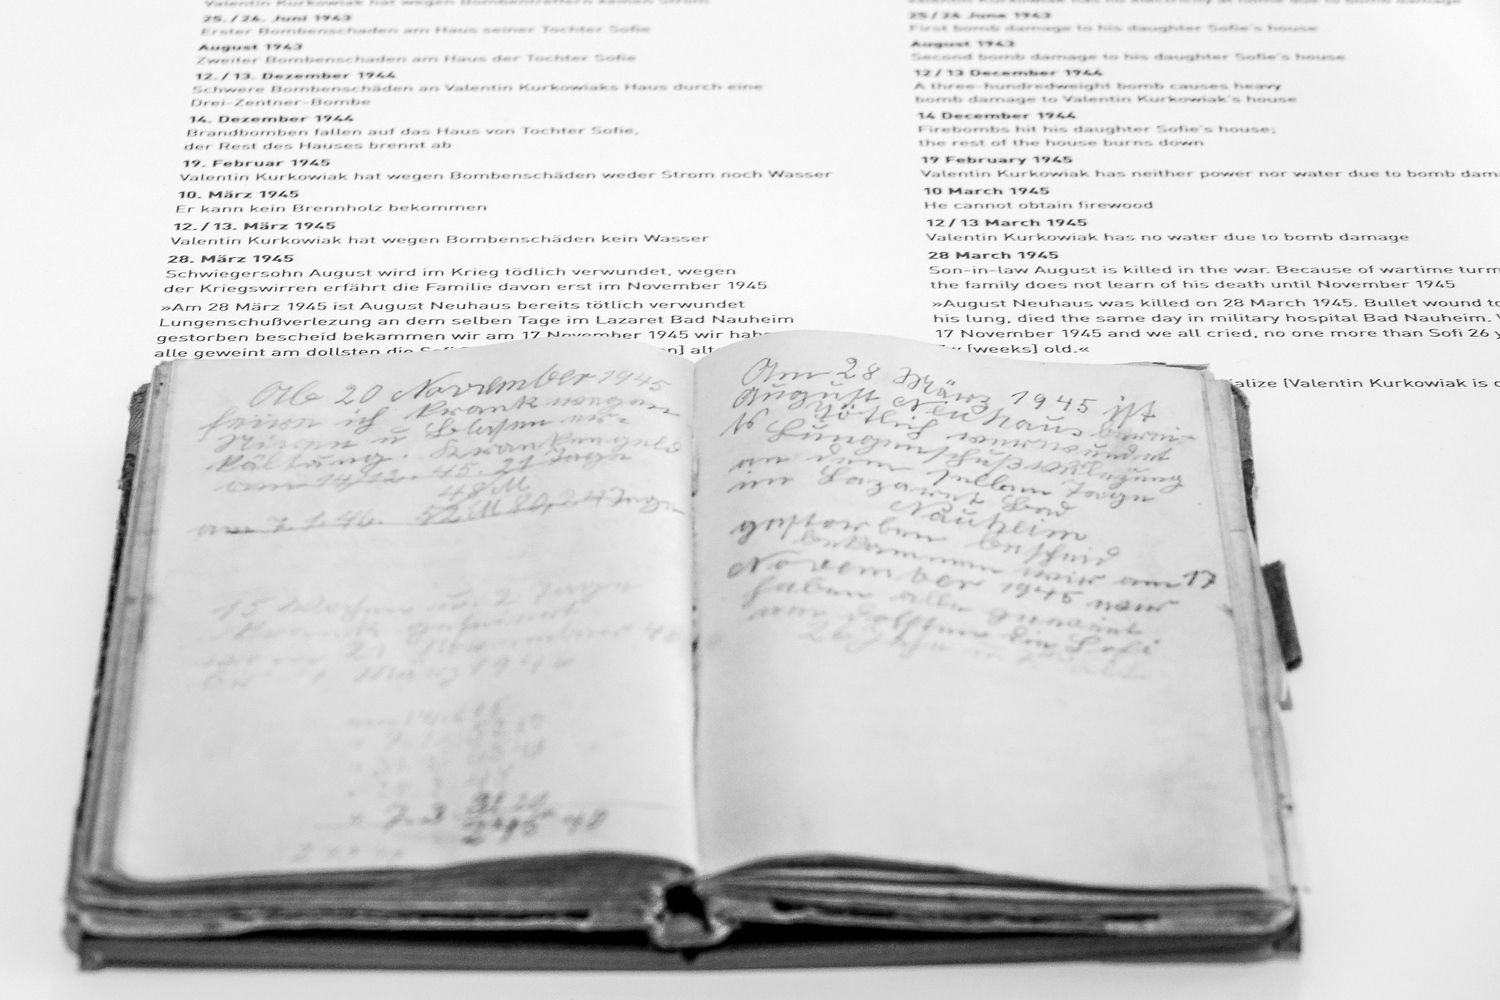 Valentin Kurkowiak hat wegen Bombentreffern keinen Strom
25. / 26. Juni 1943
Erster Bombenschaden am Haus seiner Tochter Sofie
August 1943
Zweiter Bombenschaden am Haus der Tochter Sofie
12. / 13. Dezember 1944
Schwere Bombenschäden an Valentin Kurkowiaks Haus durch eine
Drei-Zentner-Bombe
14. Dezember 1944
Brandbomben fallen auf das Haus von Tochter Sofie,
der Rest des Hauses brennt ab
19. Februar 1945
Valentin Kurkowiak hat wegen Bombenschäden weder Strom noch Wasser
10. März 1945
Er kann kein Brennholz bekommen
12. / 13. März 1945
Valentin Kurkowiak hat wegen Bombenschäden kein Wasser
28. März 1945
Schwiegersohn August wird im Krieg tödlich verwundet, wegen
der Kriegswirren erfährt die Familie davon erst im November 1945
»Am 28 März 1945 ist August Neuhaus bereits tötlich verwundet
Lungenschußverlezung an dem selben Tage im Lazaret Bad Nauheim
gestorben bescheid bekommen wir am 17 November 1945 wir habe
alle geweint am dollsten die Sofi en] alt
Valentin Kurkowiak has no electricity at home due to bomb damage
25 / 26 June 1943
First bomb damage to his daughter Sofie's house
August 1943
Second bomb damage to his daughter Sofie's house
12 / 13 December 1944
A three-hundredweight bomb causes heavy
bomb damage to Valentin Kurkowiak's house
14 December 1944
Firebombs hit his daughter Sofie's house;
the rest of the house burns down
19 February 1945
Valentin Kurkowiak has neither power nor water due to bomb dam
10 March 1945
He cannot obtain firewood
12 / 13 March 1945
Valentin Kurkowiak has no water due to bomb damage
28 March 1945
Son-in-law August is killed in the war. Because of wartime turm
the family does not learn of his death until November 1945
»August Neuhaus was killed on 28 March 1945. Bullet wound to
his lung, died the same day in military hospital Bad Nauheim.
17 November 1945 and we all cried, no one more than Sofi 26 y
[weeks] old.«
ialize [Valentin Kurkowiak is
Ab 20 November 1945
feiere ich krank wegen
Nieren u Blasen er-
kältung. Krankengeld
vom 14/12. 45. 21 Tage
48 M
am 7.1.46. 52 M 80, 24 Tage
Am 28 März 1945 ist
August Neuhaus berei-
ts tötlich verwundet
Lungenschußverlezung
an dem selben Tage
im Lazaret Bad
Nauheim
gestorben bescheid
bekommen wir am 17
November 1945 wir
haben alle geweint
am dollsten die Sofi